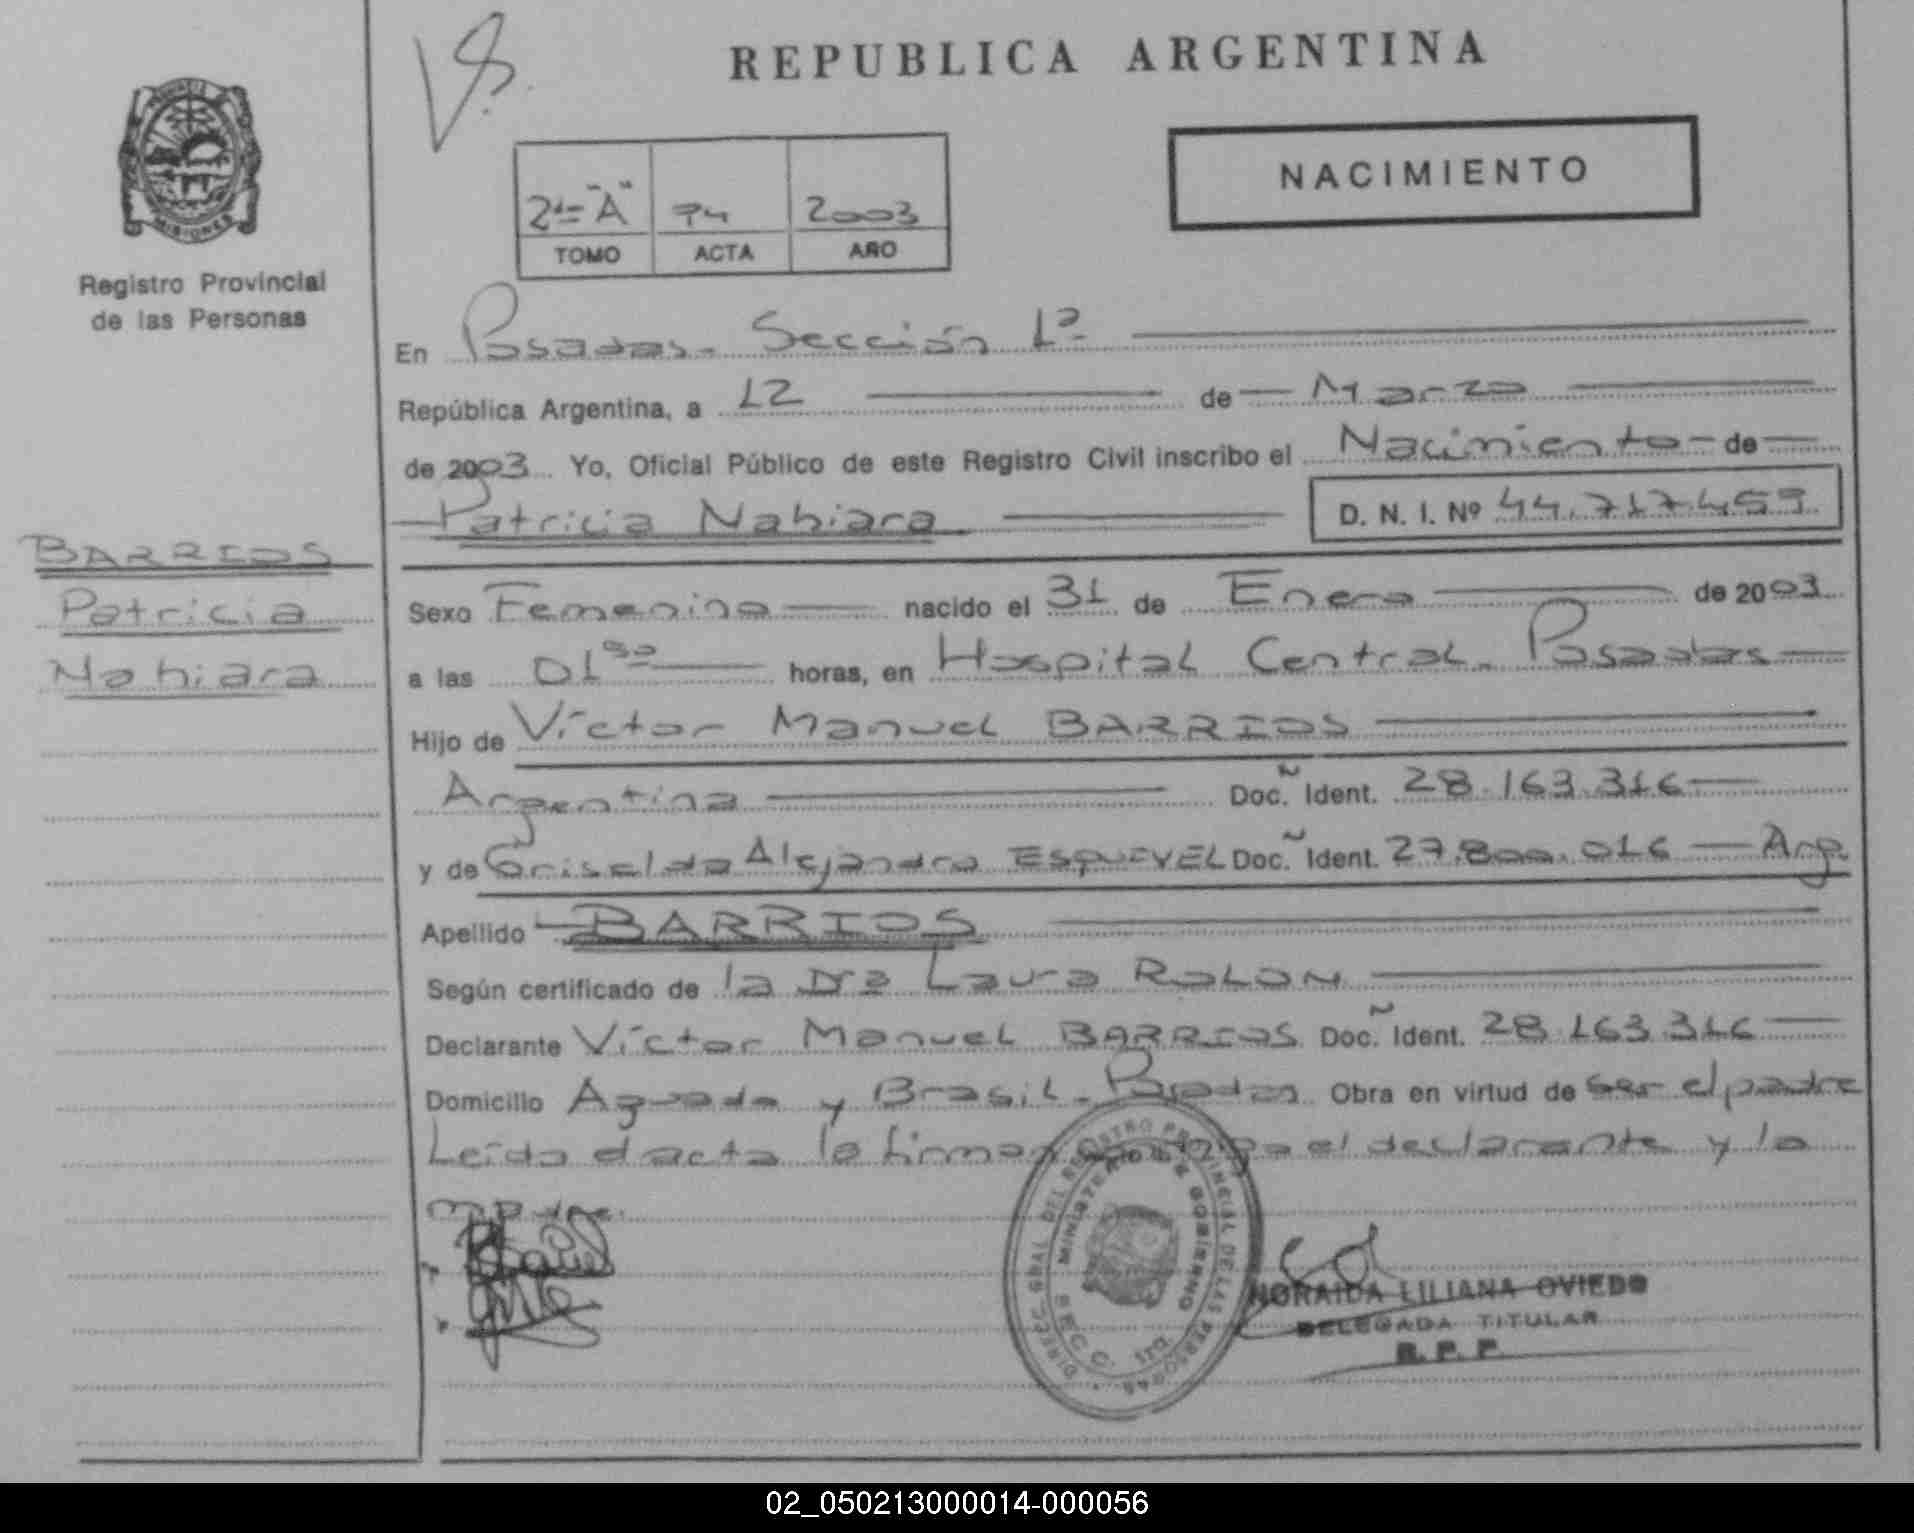 REPUBLICA ARGENTINA
NACIMIENTO
2º "A" 74 2003
TOMO ACTA AÑO
PROVINCIA DE MISIONES
Registro Provincial
de las Personas
En Posadas - Sección 1ª
República Argentina, a 12 de Marzo
de 2003 Yo, Oficial Público de este Registro Civil inscribo el Nacimiento de
Patricia Nahiara D. N. I. Nº 44.717.459
BARRIOS
Patricia
Nahiara
Sexo Femenino nacido el 31 de Enero de 2003
a las 01 horas, en Hospital Central - Posadas
Hijo de Víctor Manuel BARRIOS
Argentina Doc. Ident. 28.163.316
y de Griselda Alejandra ESQUIVEL Doc. Ident. 27.800.016 - Arg.
Apellido BARRIOS
Según certificado de la Dra Laura ROLON
Declarante Víctor Manuel BARRIOS Doc. Ident. 28.163.316
Domicilio Aguado y Brasil - Posadas Obra en virtud de ser el padre
Leída el acta la firman el declarante y la
madre.
DIREC. GRAL DEL REGISTRO PROVINCIAL DE LAS PERSONAS
MINISTERIO DE GOBIERNO
SECC. 1ra.
NORAIDA LILIANA OVIEDO
DELEGADA TITULAR
R. P. P.
02_050213000014-000056